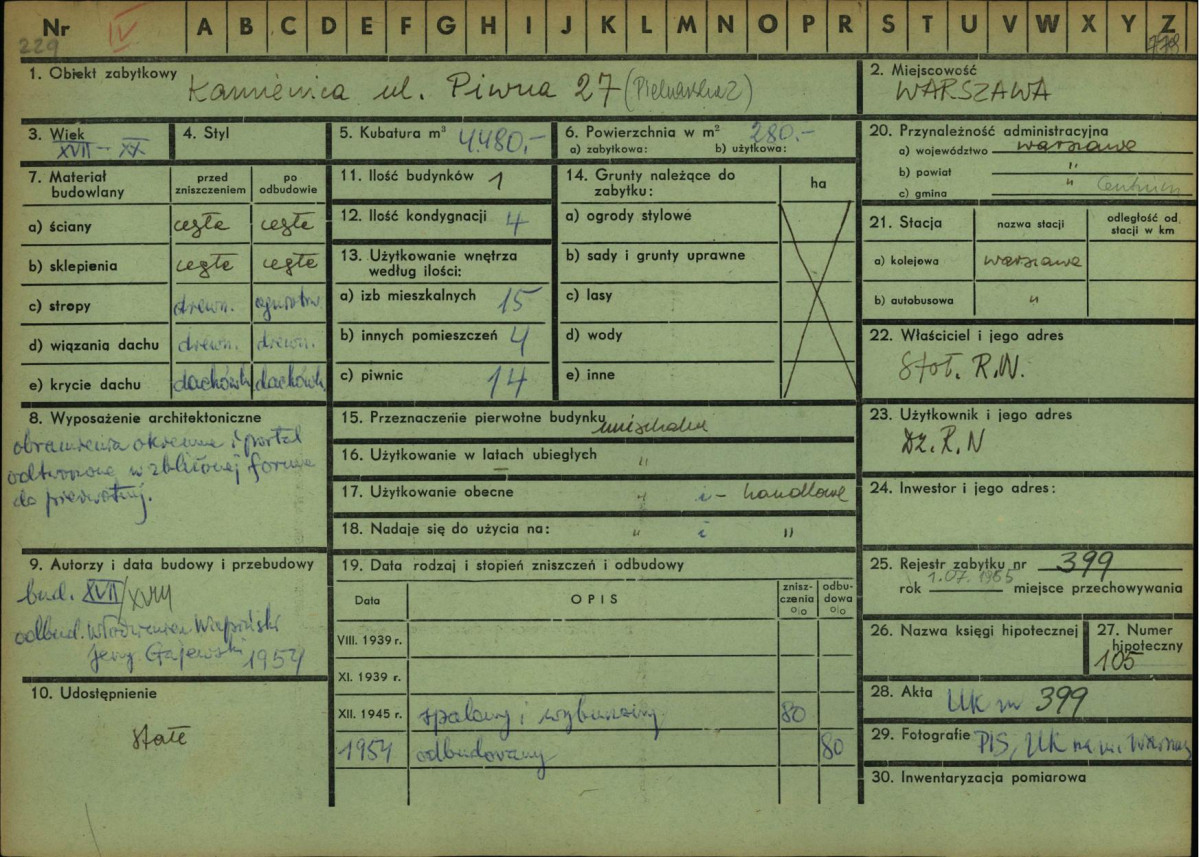 Nr IV A B C D E F G H I J K L M N O P R S T U V W X Y Z
229 778
1. Obiekt zabytkowy Kamienica ul. Piwna 27 (Piekarska 2)
2. Miejscowość
WARSZAWA
3. Wiek
XVII - XX
4. Styl
5. Kubatura m³ 4.480,-
6. Powierzchnia w m² 280.-
a) zabytkowa: b) użytkowa:
7. Materiał budowlany
przed zniszczeniem
po odbudowie
a) ściany cegła cegła
b) sklepienia cegła cegła
c) stropy drewn. ogniotrw.
d) wiązania dachu drewn. drewn.
e) krycie dachu dachówk dachówk
8. Wyposażenie architektoniczne
obramienia okienne i portal
odtworzone w zbliżonej formie
do pierwotnej.
9. Autorzy i data budowy i przebudowy
bud. XVII/XVIII
odbud. Włodzimierz Wapiński
Jerzy Gajewski 1954
10. Udostępnienie
Stałe
11. Ilość budynków 1
12. Ilość kondygnacji 4
13. Użytkowanie wnętrza
według ilości:
a) izb mieszkalnych 15
b) innych pomieszczeń 4
c) piwnic 14
14. Grunty należące do
zabytku:
ha
a) ogrody stylowe
b) sady i grunty uprawne
c) lasy
d) wody
e) inne
15. Przeznaczenie pierwotne budynku mieszkalne
16. Użytkowanie w latach ubiegłych "
17. Użytkowanie obecne " i - handlowe
18. Nadaje się do użycia na: " i "
19. Data rodzaj i stopień zniszczeń i odbudowy
Data
OPIS
znisz-
czenia
%
odbu-
dowa
%
VIII. 1939 r.
XI. 1939 r.
XII. 1945 r. spalony i wyburzony 80
1954 odbudowany 80
20. Przynależność administracyjna
a) województwo warszawa
b) powiat "
c) gmina " Centrum
21. Stacja
nazwa stacji
odległość od
stacji w km
a) kolejowa warszawa
b) autobusowa "
22. Właściciel i jego adres
Stoł. R.N.
23. Użytkownik i jego adres
Dz. R. N
24. Inwestor i jego adres:
25. Rejestr zabytku nr 399
rok 1.07.1965 miejsce przechowywania
26. Nazwa księgi hipotecznej
27. Numer
hipoteczny
105
28. Akta UK nr 399
29. Fotografie PIS, UK na m.
30. Inwentaryzacja pomiarowa